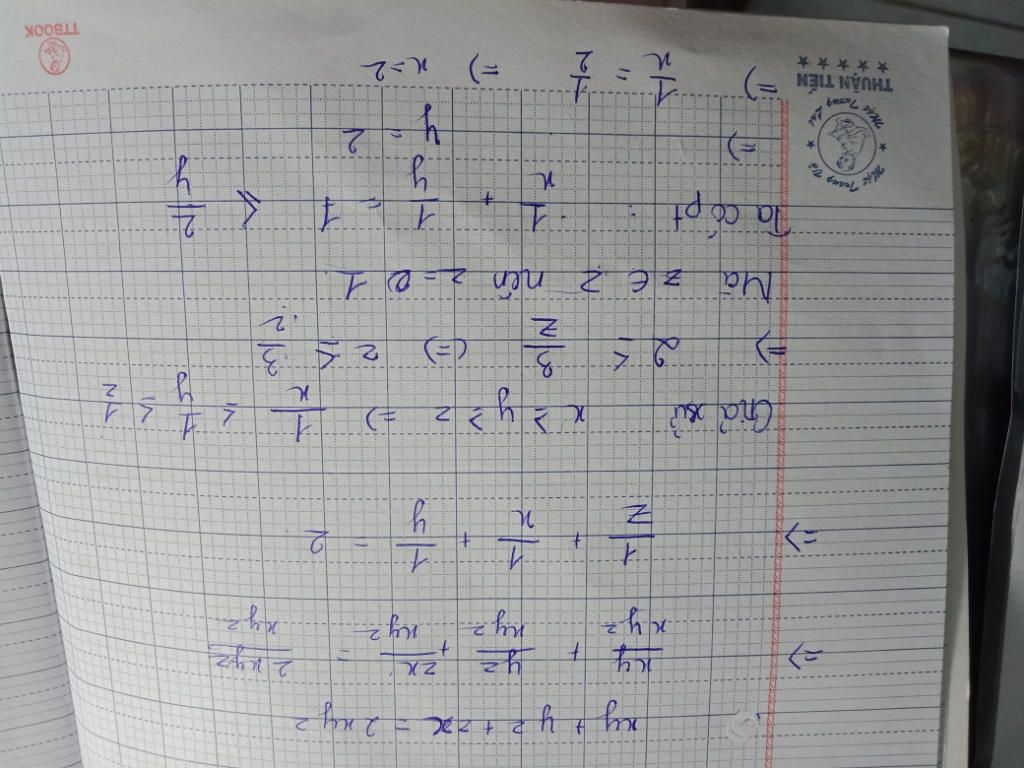 xy + yz + zx = 2xyz
=> xy/xyz + yz/xyz + zx/xyz = 2xyz/xyz
=> 1/z + 1/x + 1/y = 2
Giả sử x ≥ y ≥ z => 1/x ≤ 1/y ≤ 1/z
=> 2 ≤ 3/z (=) z ≤ 3/2
Mà z ∈ Z nên z = 1
Ta có pt : 1/x + 1/y = 1 ≤ 2/y
=) y = 2
=) 1/x = 1/2 =) x = 2
THUẬN TIẾN
TTBOOK